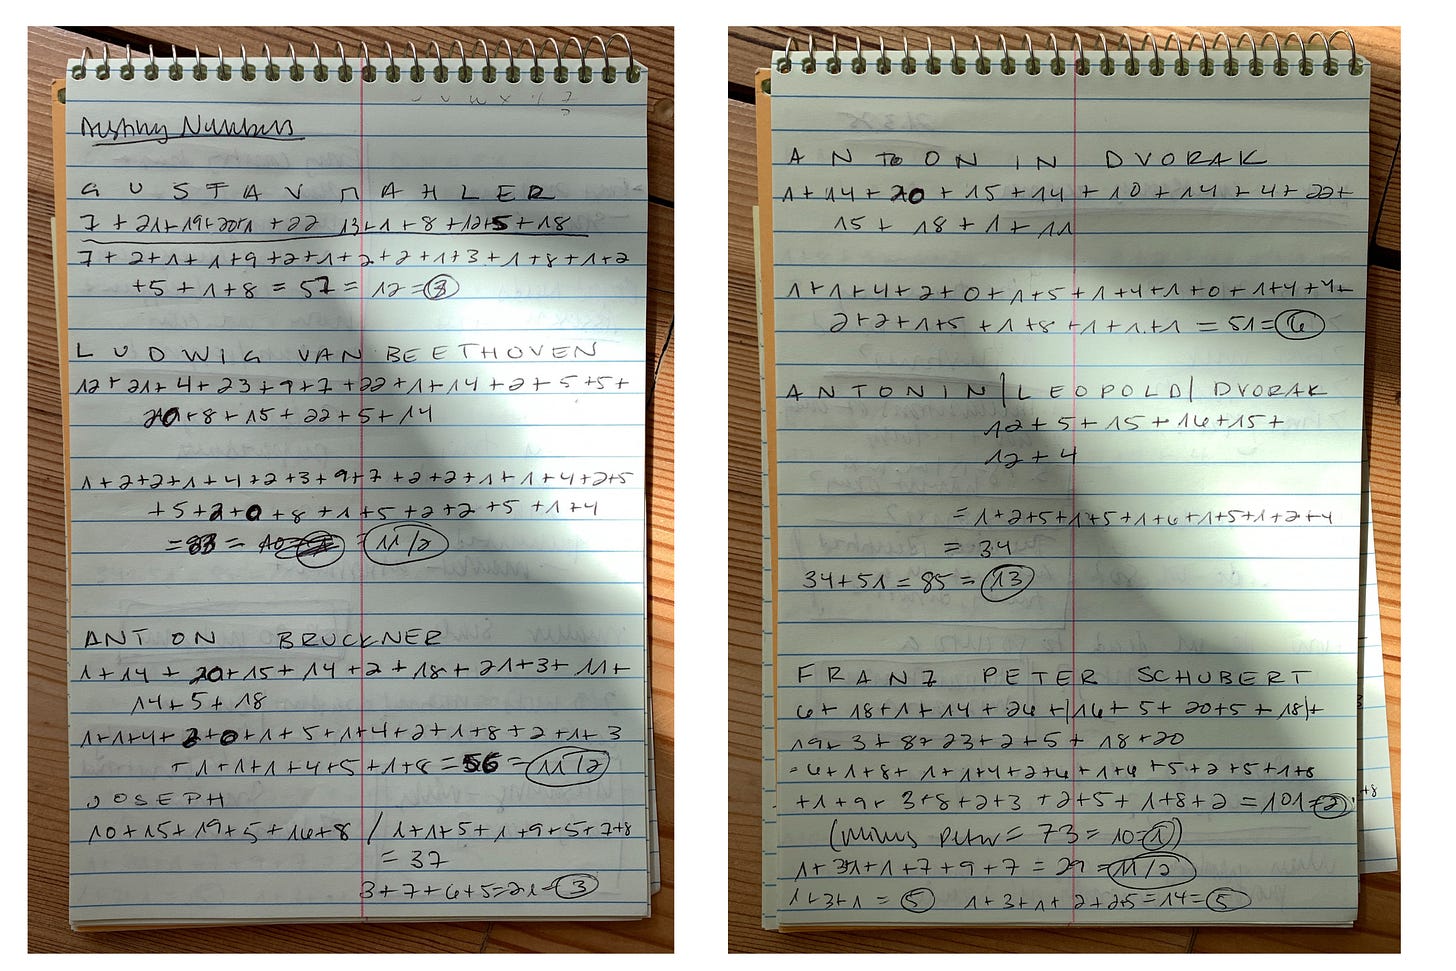 Destiny Numbers
GUSTAV MAHLER
7 + 21 + 19 + 20 + 1 + 22 13 + 1 + 8 + 12 + 5 + 18
7 + 2 + 1 + 1 + 9 + 2 + 1 + 2 + 2 + 1 + 3 + 1 + 8 + 1 + 2
+ 5 + 1 + 8 = 57 = 12 = 3
LUDWIG VAN BEETHOVEN
12 + 21 + 4 + 23 + 9 + 7 + 22 + 1 + 14 + 2 + 5 + 5 +
20 + 8 + 15 + 22 + 5 + 14
1 + 2 + 2 + 1 + 4 + 2 + 3 + 9 + 7 + 2 + 2 + 1 + 1 + 4 + 2 + 5
+ 5 + 2 + 0 + 8 + 1 + 5 + 2 + 2 + 5 + 1 + 4
= 11/2
ANTON BRUCKNER
1 + 14 + 20 + 15 + 14 + 2 + 18 + 21 + 3 + 11 +
14 + 5 + 18
1 + 1 + 4 + 2 + 0 + 1 + 5 + 1 + 4 + 2 + 1 + 8 + 2 + 1 + 3
+ 1 + 1 + 1 + 4 + 5 + 1 + 8 = 56 = 11/2
JOSEPH
10 + 15 + 19 + 5 + 16 + 8 / 1 + 1 + 5 + 1 + 9 + 5 + 7 + 8
= 37
3 + 7 + 6 + 5 = 21 = 3
ANTON IN DVORAK
1 + 14 + 20 + 15 + 14 + 10 + 14 + 4 + 22 +
15 + 18 + 1 + 11
1 + 1 + 4 + 2 + 0 + 1 + 5 + 1 + 4 + 1 + 0 + 1 + 4 + 4 +
2 + 2 + 1 + 5 + 1 + 8 + 1 + 1 + 1 = 51 = 6
ANTONIN | LEOPOLD | DVORAK
12 + 5 + 15 + 16 + 15 +
12 + 4
= 1 + 2 + 5 + 1 + 5 + 1 + 6 + 1 + 5 + 1 + 2 + 4
= 34
34 + 51 = 85 = 13
FRANZ PETER SCHUBERT
6 + 18 + 1 + 14 + 26 + | 16 + 5 + 20 + 5 + 18 | +
19 + 3 + 8 + 23 + 2 + 5 + 18 + 20
= 6 + 1 + 8 + 1 + 1 + 4 + 2 + 6 + 1 + 6 + 5 + 2 + 5 + 1 + 8
+ 1 + 9 + 3 + 8 + 2 + 3 + 2 + 5 + 1 + 8 + 2 = 101 = 2
(minus Peter = 73 = 10 = 1)
1 + 31 + 1 + 7 + 9 + 7 = 29 = 11/2
1 + 3 + 1 = 5 1 + 3 + 1 + 2 + 25 = 14 = 5